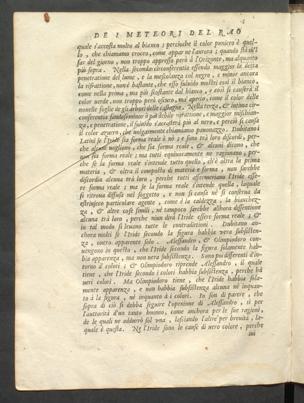 DE I METEORI DEL RAO
quale s'accosta molto al bianco; perciluche il color ponico è quel-
lo, che chiamamo croceo, come appar ne l'aurora; quando
sar del giorno, non troppo appresso però à l'Orizonte, ma alquanto
più sopra. Nella seconda circonferentia essendo maggior la
penetratione del lume, e la mescolanza col negro, e minor ancora
la rifrattione, non è bastante, che esso
come nella prima, ma più scostante dal bianco, e così si causerà il
color verde, non troppo però oscuro, ma aperto, come il color delle
novelle foglie de gli arbori
conferentia più debole rifrattione, e maggior
e penetratione, il si causa
il color azurro, che volgarmente chiamiamo pavonazzo. Dubitano i
Latini se l'Iride sia forma reale ò nò; e sono trà loro discordi, per-
che alcuni vogliono, che sia forma reale, & alcuni dicono, che
non sia forma reale; ma tutti equivocamente ne ragionano, per-
che se la forma reale s'intende tutto quello, ch'è altra la prima
materia, & oltra il composto di materia e forma, non sarebbe
discordia alcuna trà loro, perche tutti affermariano l'Iride esse-
re forma reale; ma se la forma reale s'intende quella, laquale
si ritrova diffusa nel soggetto, e non si causa nè si conserva da
estrinseco particolare agente, come è la caldezza, la bianchez-
za, & altre cose simili, nè tampoco sarebbe allhora dissentione
alcuna trà loro, perche niun dirà l'Iride essere forma reale; &
in tal modo si levano tutte le contradittioni. Dubitano an-
chora molti se l'Iride secondo la figura habbia vera subsisten-
za, ovvero apparente solo. Alessandro, & Olimpiodoro con-
vengono in questo, che l'Iride secondo la figura solamente hab-
bia apparenza, ma non vera subsistenza. Sono poi differenti d'in-
torno à i colori; & Olimpiodoro riprende Alessandro, il quale
tiene, che l'Iride secondo i colori habbia subsistenza, perche hà
veri colori. Ma Olimpiodoro tiene, che l'Iride habbia sola-
mente apparenza, e non habbia subsistenza alcuna nè inquan-
to à la figura, nè inquanto à i colori. In fin di parere, che
sopra di ciò si debba seguire l'openione di Alessandro, si per
l'auttorità d'un tanto huomo, come anchora per le sue ragioni,
de le quali ne addurrò sol una, lasciando l'altre per brevità, la-
quale è questa. Ne l'Iride sono le cause di vero colore, perche